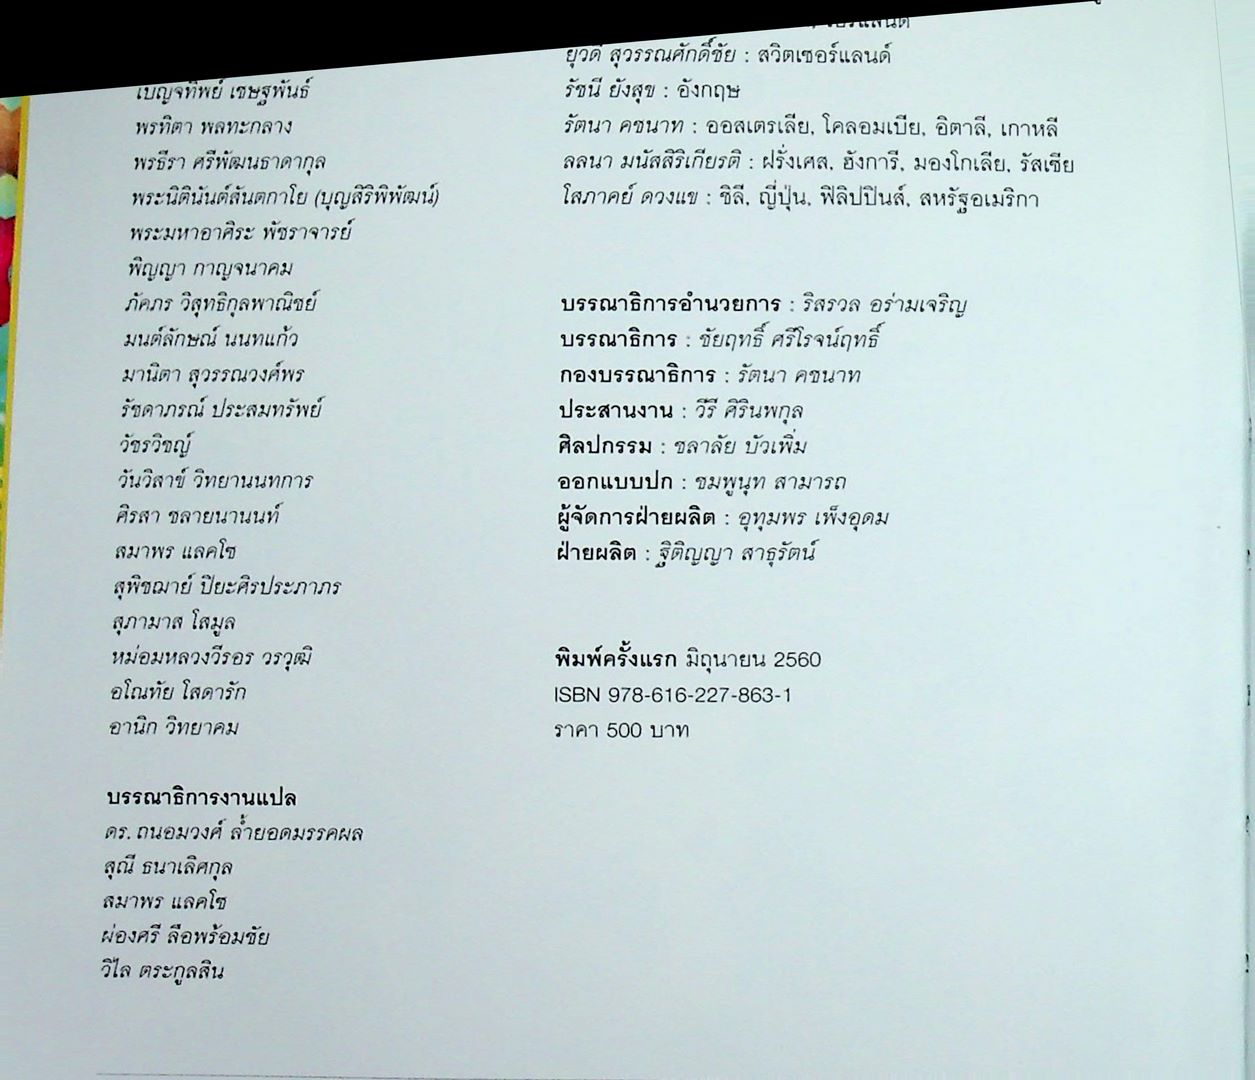 เบญจทิพย์ เชษฐพันธ์
พรทิตา พลทะกลาง
พรธีรา ศรีพัฒนธาดากุล
พระนิตินันต์สันตกาโย (บุญสิริพิพัฒน์)
พระมหาอาศิระ พัชราจารย์
พิญญา กาญจนาคม
ภัคภร วิสุทธิกุลพาณิชย์
มนต์ลักษณ์ นนทแก้ว
มานิตา สุวรรณวงศ์พร
รัชดาภรณ์ ประสมทรัพย์
วัชรวิชญ์
วันวิสาข์ วิทยานนทการ
ศิรสา ชลายนานนท์
สมาพร แลคโซ
สุพิชฌาย์ ปิยะศิรประภาภร
สุภามาส โสมูล
หม่อมหลวงวีรอร วรวุฒิ
อโณทัย โสดารัก
อานิก วิทยาคม
บรรณาธิการงานแปล
ดร. ถนอมวงศ์ ล้ำยอดมรรคผล
สุณี ธนาเลิศกุล
สมาพร แลคโซ
ผ่องศรี ลือพร้อมชัย
วิไล ตระกูลสิน
ยุวดี สุวรรณศักดิ์ชัย : สวิตเซอร์แลนด์
รัชนี ยังสุข : อังกฤษ
รัตนา คชนาท : ออสเตรเลีย, โคลอมเบีย, อิตาลี, เกาหลี
ลลนา มนัสสิริเกียรติ : ฝรั่งเศส, ฮังการี, มองโกเลีย, รัสเซีย
โสภาคย์ ดวงแข : ชิลี, ญี่ปุ่น, ฟิลิปปินส์, สหรัฐอเมริกา
บรรณาธิการอำนวยการ : ริสรวล อร่ามเจริญ
บรรณาธิการ : ชัยฤทธิ์ ศรีโรจน์ฤทธิ์
กองบรรณาธิการ : รัตนา คชนาท
ประสานงาน : วีรี ศิรินพกุล
ศิลปกรรม : ชลาลัย บัวเพิ่ม
ออกแบบปก : ชมพูนุท สามารถ
ผู้จัดการฝ่ายผลิต : อุทุมพร เพ็งอุดม
ฝ่ายผลิต : ฐิติญญา สาธุรัตน์
พิมพ์ครั้งแรก มิถุนายน 2560
ISBN 978-616-227-863-1
ราคา 500 บาท